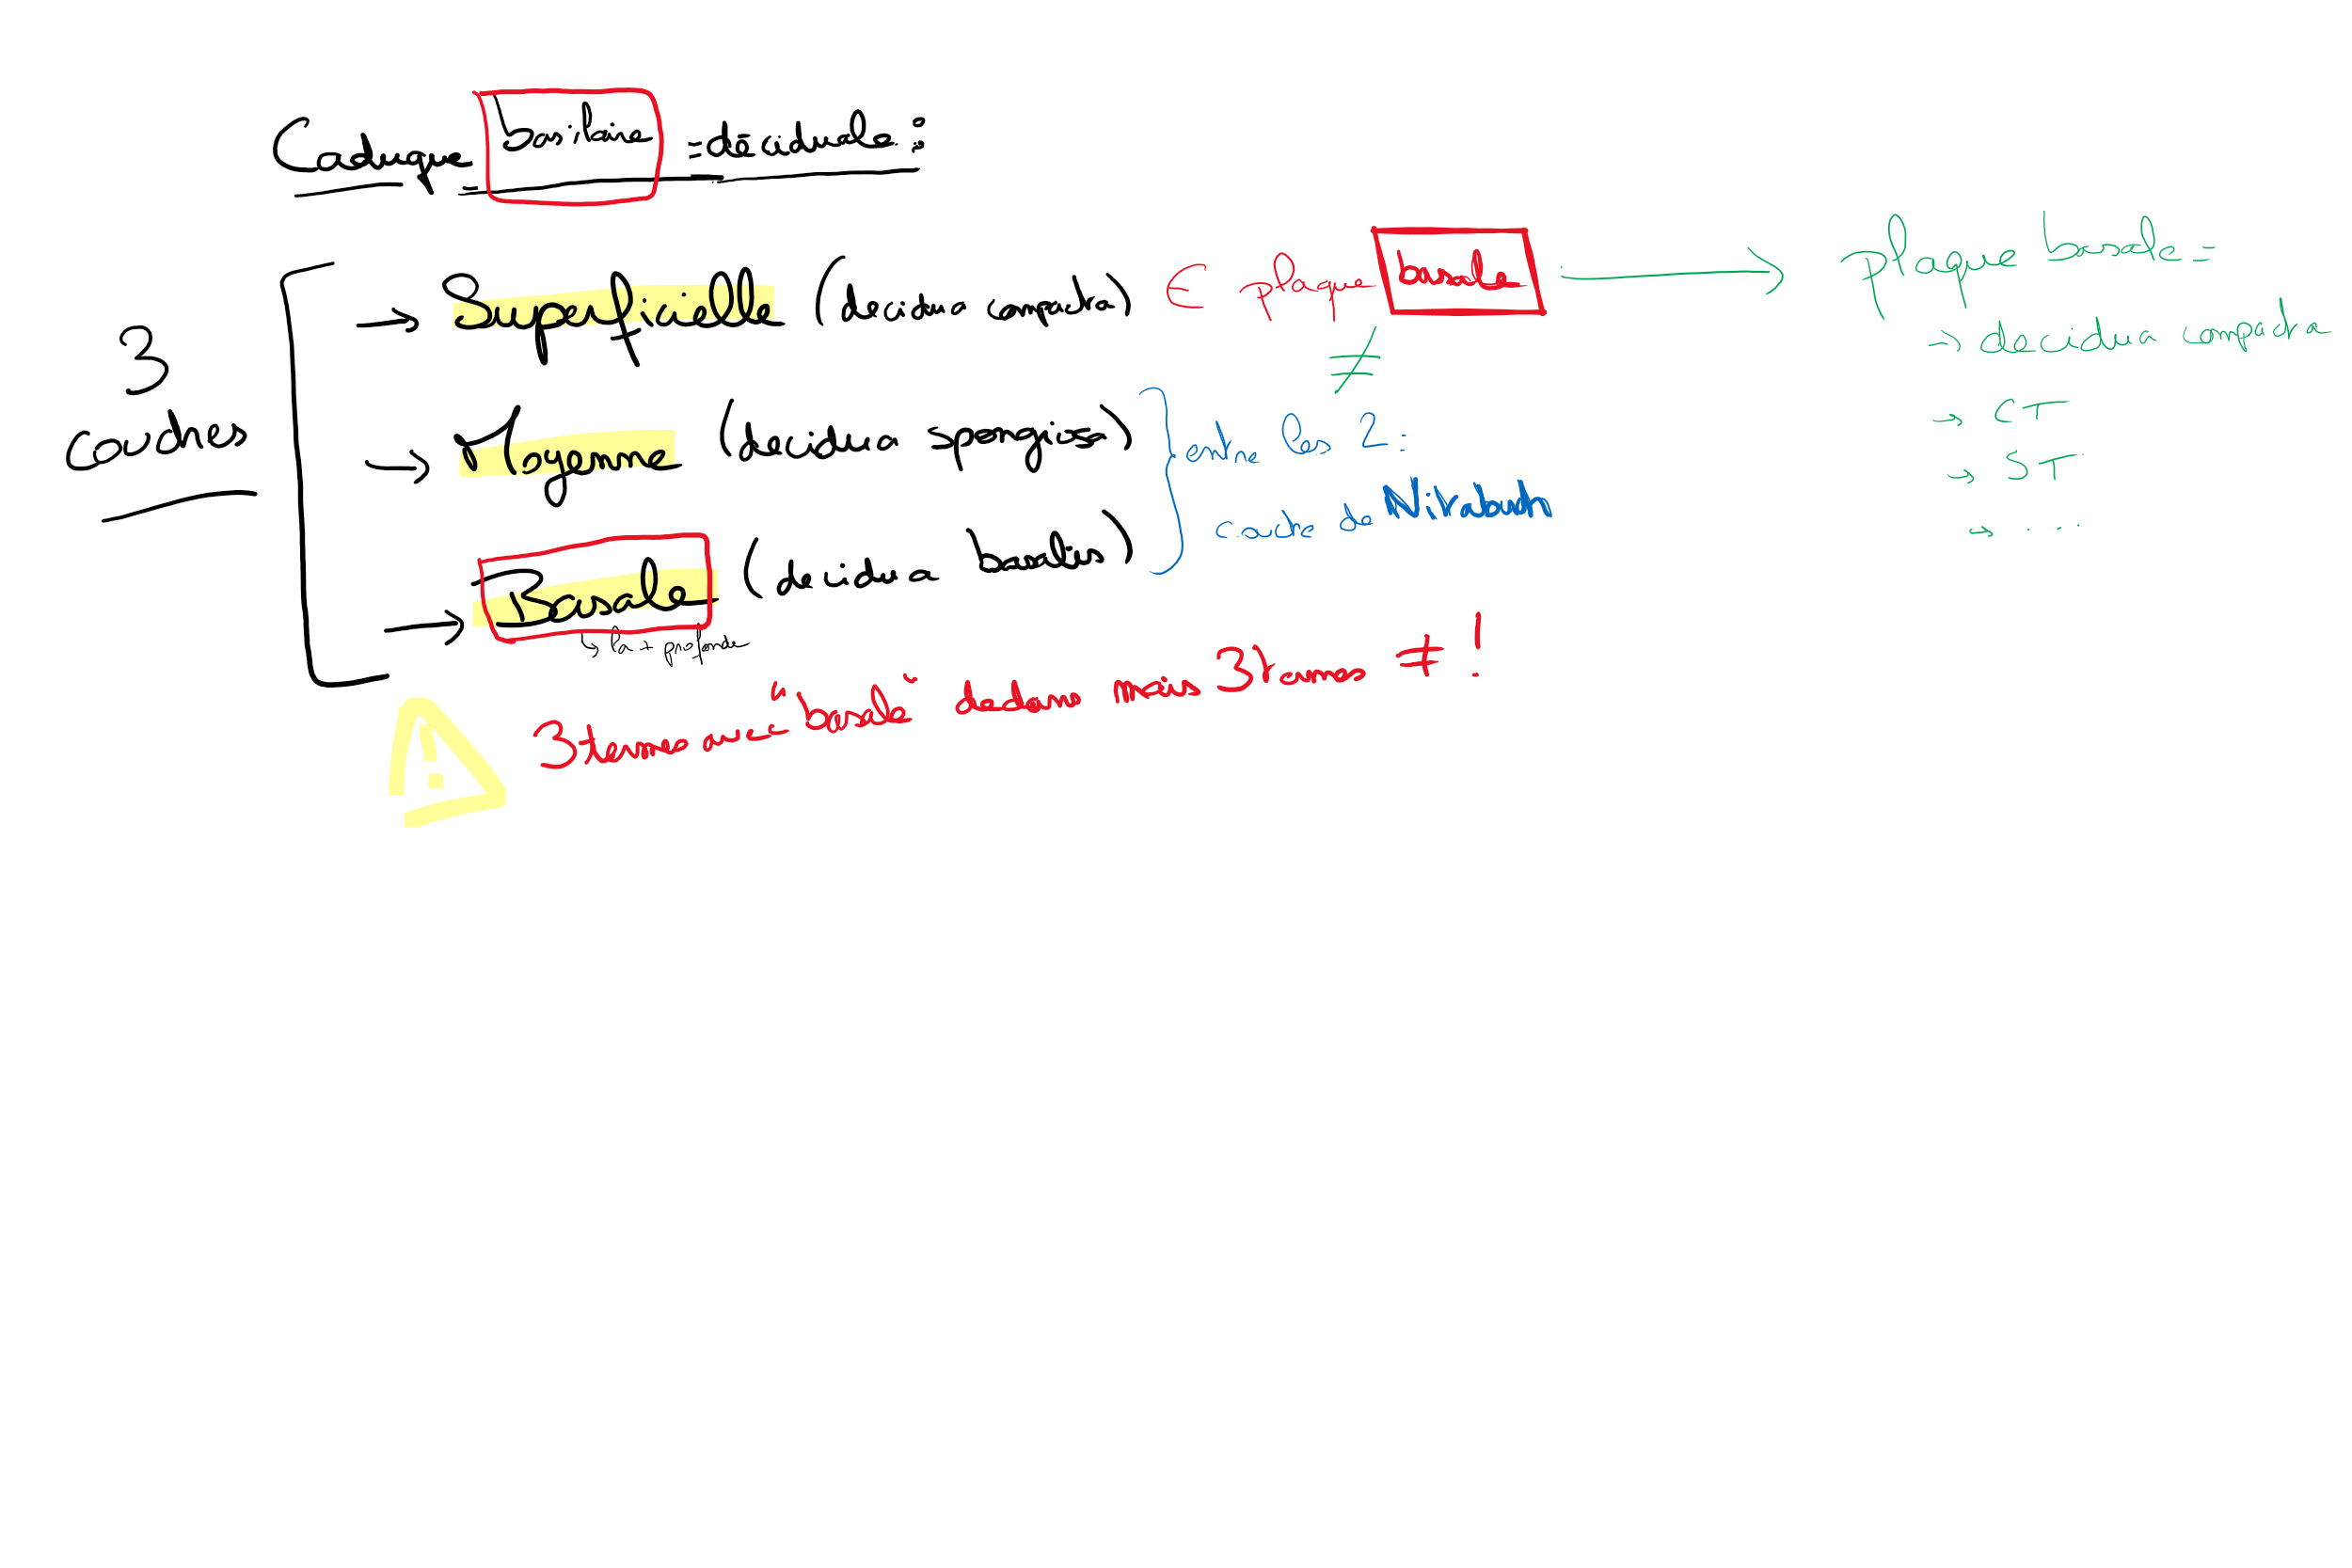 Caduque basilaire = déciduale :
3 couches
→ Superficielle (decidua compacta) ∈ plaque basale → plaque basale =
≠
→ decidua compacta
→ CT
→ ST
→ ...
→ Moyenne (decidua spongiosa)
→ Basale (decidua basalis)
↳ la + profonde
entre les 2 :
couche de Nitabuch
3 termes avec "basale" dedans mais 3 termes ≠ !